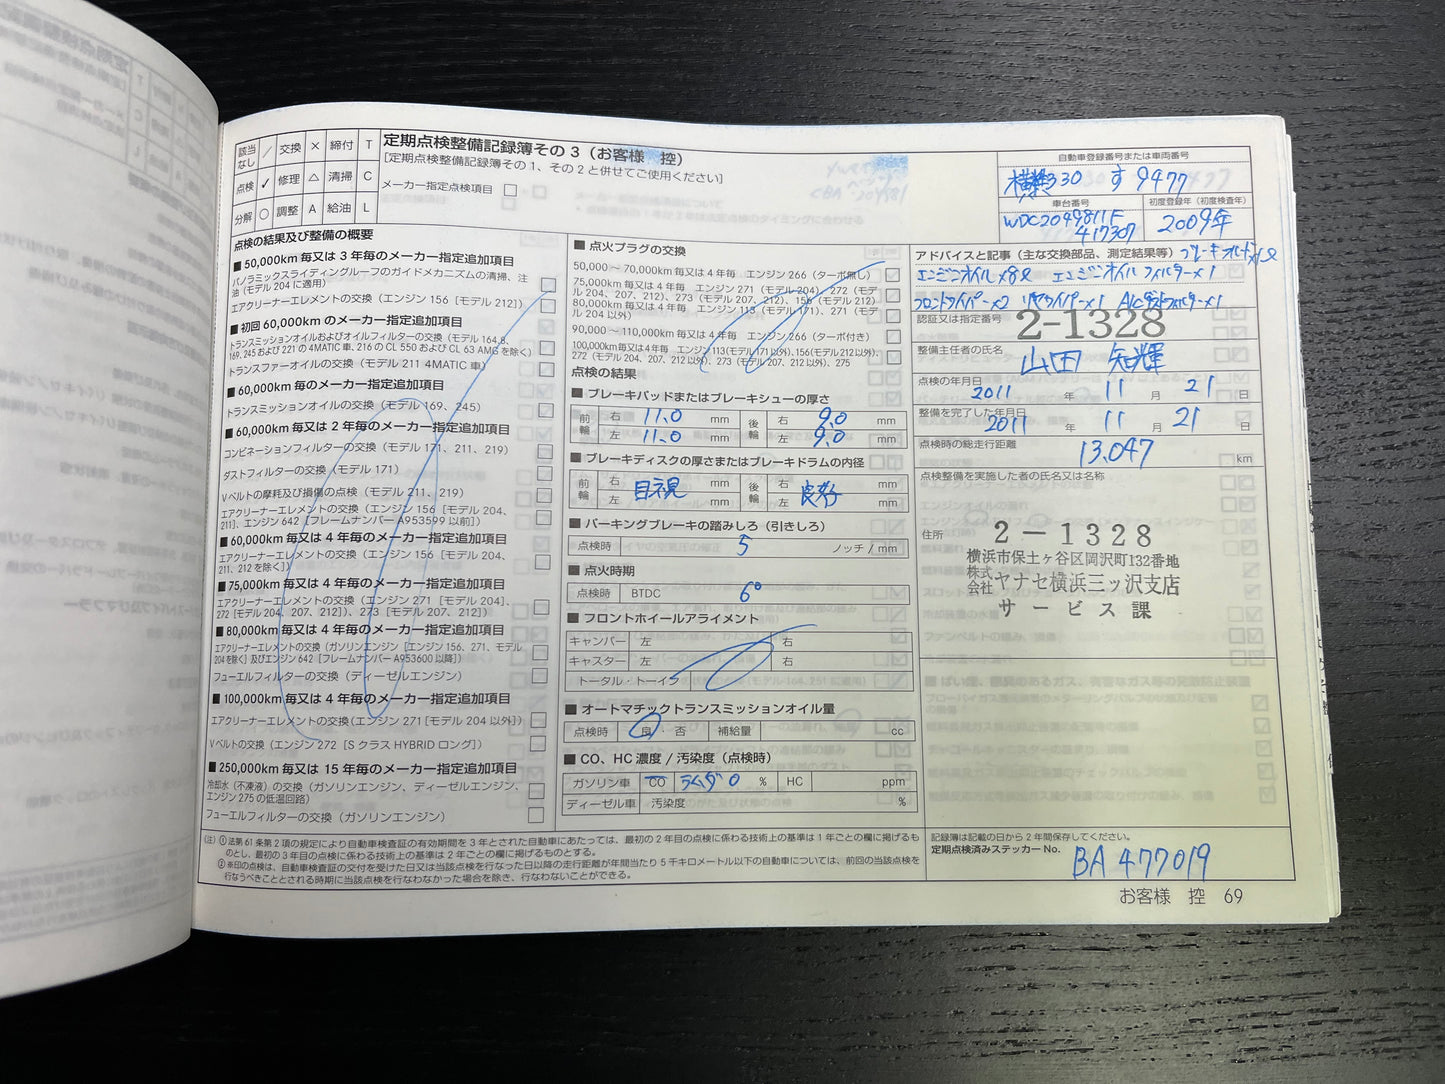 該当なし ／ 交換 × 締付 T
点検 ✓ 修理 △ 清掃 C
分解 ○ 調整 A 給油 L
定期点検整備記録簿その3（お客様 控）
[定期点検整備記録簿その1、その2と併せてご使用ください]
メーカー指定点検項目 □ □
自動車登録番号または車両番号
横浜330 す 9477
車台番号
WDC2049811F
417307
初度登録年（初度検査年）
2009年
点検の結果及び整備の概要
■ 50,000km 毎又は 3 年毎のメーカー指定追加項目
パノラミックスライディングルーフのガイドメカニズムの清掃、注
油（モデル 204 に適用）
エアクリーナーエレメントの交換（エンジン 156［モデル 212］）
■ 初回 60,000km のメーカー指定追加項目
トランスミッションオイルおよびオイルフィルターの交換（モデル 164.8、
169, 245 および 221 の 4MATIC 車、216 の CL 550 および CL 63 AMG を除く）
トランスファーオイルの交換（モデル 211 4MATIC 車）
■ 60,000km 毎のメーカー指定追加項目
トランスミッションオイルの交換（モデル 169、245）
■ 60,000km 毎又は 2 年毎のメーカー指定追加項目
コンビネーションフィルターの交換（モデル 171、211、219）
ダストフィルターの交換（モデル 171）
Vベルトの摩耗及び損傷の点検（モデル 211、219）
エアクリーナーエレメントの交換（エンジン 156［モデル 204、
211］、エンジン 642［フレームナンバー A953599 以前］）
■ 60,000km 毎又は 4 年毎のメーカー指定追加項目
エアクリーナーエレメントの交換（エンジン 156［モデル 204、
211、212 を除く］）
■ 75,000km 毎又は 4 年毎のメーカー指定追加項目
エアクリーナーエレメントの交換（エンジン 271［モデル 204］、
272［モデル 204、207、212］）、273［モデル 207、212］）
■ 80,000km 毎又は 4 年毎のメーカー指定追加項目
エアクリーナーエレメントの交換（ガソリンエンジン［エンジン 156、271、モデル
204 を除く］及びエンジン 642［フレームナンバー A953600 以降］）
フューエルフィルターの交換（ディーゼルエンジン）
■ 100,000km 毎又は 4 年毎のメーカー指定追加項目
エアクリーナーエレメントの交換（エンジン 271［モデル 204 以外］）
Vベルトの交換（エンジン 272［S クラス HYBRID ロング］）
■ 250,000km 毎又は 15 年毎のメーカー指定追加項目
冷却水（不凍液）の交換（ガソリンエンジン、ディーゼルエンジン、
エンジン 275 の低温回路）
フューエルフィルターの交換（ガソリンエンジン）
■ 点火プラグの交換
50,000 ～ 70,000km 毎又は 4 年毎 エンジン 266（ターボ無し）
75,000km 毎又は 4 年毎 エンジン 271（モデル 204）、272（モ
デル 204、207、212）、273（モデル 207、212）、156（モデル 212）
80,000km 毎又は 4 年毎 エンジン 113（モデル 171）、271（モデ
ル 204 以外）
90,000 ～ 110,000km 毎又は 4 年毎 エンジン 266（ターボ付き）
100,000km 毎又は 4 年毎 エンジン 113（モデル 171 以外）、156（モデル 212 以外）、
272（モデル 204、207、212 以外）、273（モデル 207、212 以外）、275
点検の結果
■ ブレーキパッドまたはブレーキシューの厚さ
前輪 右 11.0 mm 後輪 右 9.0 mm
左 11.0 mm 左 9.0 mm
■ ブレーキディスクの厚さまたはブレーキドラムの内径
前輪 右 mm 後輪 右 mm
目視 良好
左 mm 左 mm
■ パーキングブレーキの踏みしろ（引きしろ）
点検時 5 ノッチ / mm
■ 点火時期
点検時 BTDC 6°
■ フロントホイールアライメント
キャンバー 左 右
キャスター 左 右
トータル・トーイン
■ オートマチックトランスミッションオイル量
点検時 良・否 補給量 cc
■ CO、HC 濃度 / 汚染度（点検時）
ガソリン車 CO ラムダ 0 % HC ppm
ディーゼル車 汚染度 %
アドバイスと記事（主な交換部品、測定結果等）ブレーキフルード×1ℓ
エンジンオイル×8ℓ エンジンオイルフィルター×1
フロントワイパー×2 リヤワイパー×1 A/Cダストフィルター×1
認証又は指定番号 2-1328
整備主任者の氏名
山田 知輝
点検の年月日
2011 年 11 月 21 日
整備を完了した年月日
2011 年 11 月 21 日
点検時の総走行距離
13,047 km
点検整備を実施した者の氏名又は名称
2－1328
住所
横浜市保土ヶ谷区岡沢町132番地
株式会社 ヤナセ横浜三ッ沢支店
サービス課
(注) ① 法第 61 条第 2 項の規定により自動車検査証の有効期間を 3 年とされた自動車にあたっては、最初の 2 年目の点検に係わる技術上の基準は 1 年ごとの欄に掲げるも
のとし、最初の 3 年目の点検に係わる技術上の基準は 2 年ごとの欄に掲げるものとする。
② ※印の点検は、自動車検査証の交付を受けた日又は当該点検を行なった日以降の走行距離が年間当たり 5 千キロメートル以下の自動車については、前回の当該点検を
行なうべきこととされる時期に当該点検を行なわなかった場合を除き、行なわないことができる。
記録簿は記載の日から 2 年間保存してください。
定期点検済みステッカー No.
BA 477019
お客様 控 69